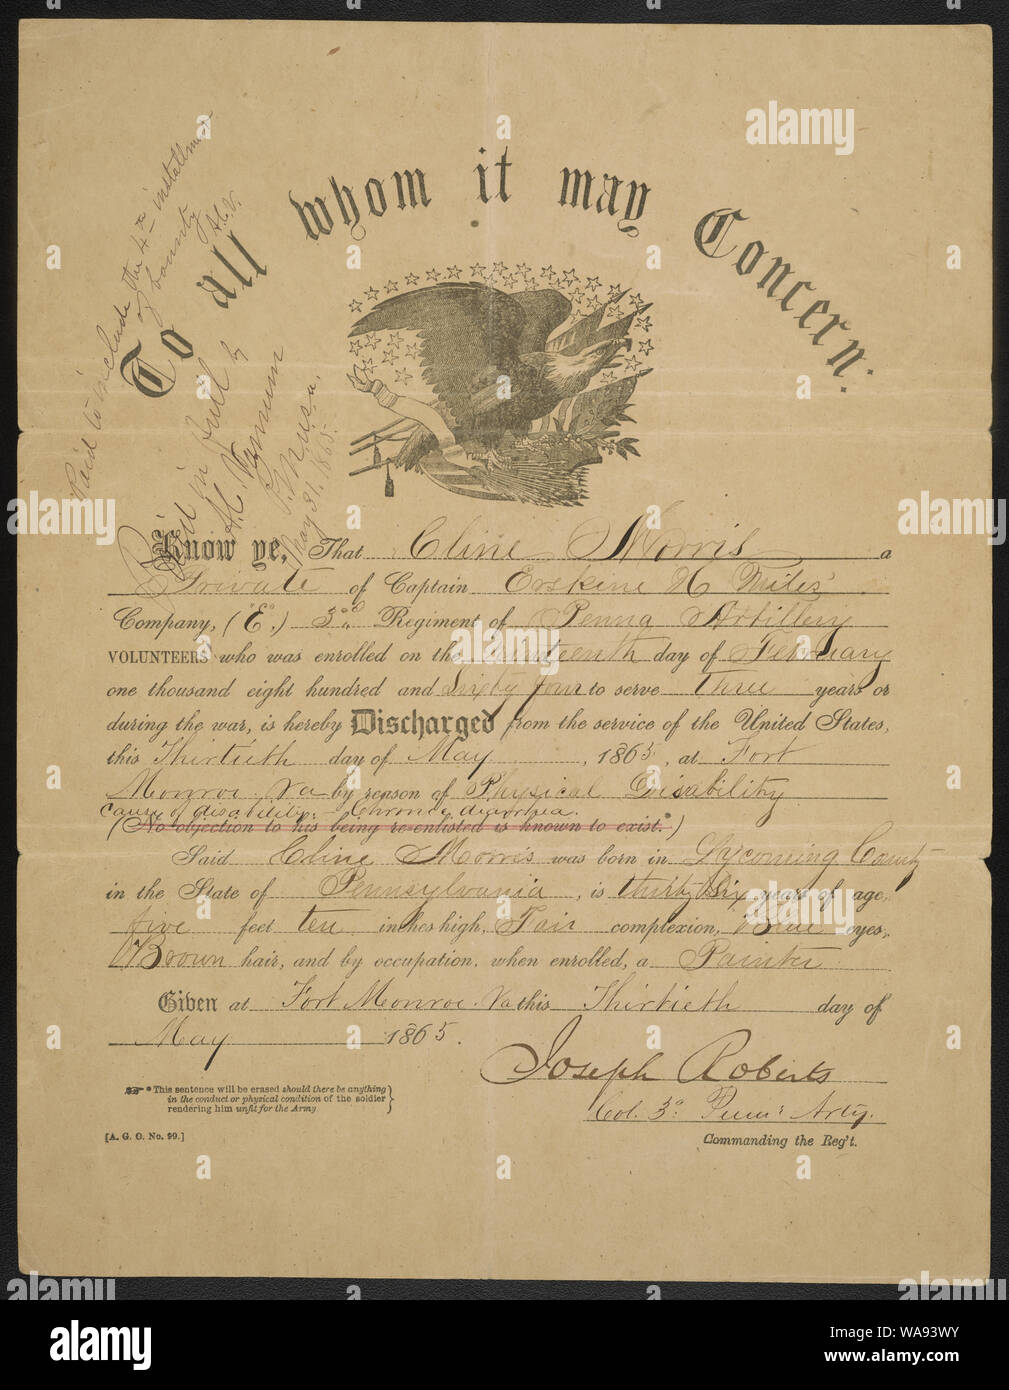 To all whom it may Concern:
Paid to include the 4th installment
of bounty
Paid in full by
May 31. 1865.
Know ye, That Cline Morris a
Private of Captain Erskine H Miles'
Company, ("E".) 3rd Regiment of Penna Artillery
VOLUNTEERS who was enrolled on the day of February
one thousand eight hundred and Sixty four to serve three years or
during the war, is hereby Discharged from the service of the United States,
this Thirtieth day of May, 1865, at Fort
Monroe Va by reason of Physical Disability
cause of disability:- Chronic diarrhea.
(No objection to his being re-enlisted is known to exist.*)
Said Cline Morris was born in Lycoming County
in the State of Pennsylvania, is thirty six years of age,
five feet ten inches high, Fair complexion, Blue eyes,
Brown hair, and by occupation, when enrolled, a Painter
Given at Fort Monroe Va this Thirtieth day of
May 1865.
Joseph Roberts
Col. 3d Penn: Arty.
Commanding the Reg't.
*This sentence will be erased should there be anything
in the conduct or physical condition of the soldier
rendering him unfit for the Army
[A. G. O. No. 99.]
alamy
Image ID: WA93WY
www.alamy.com